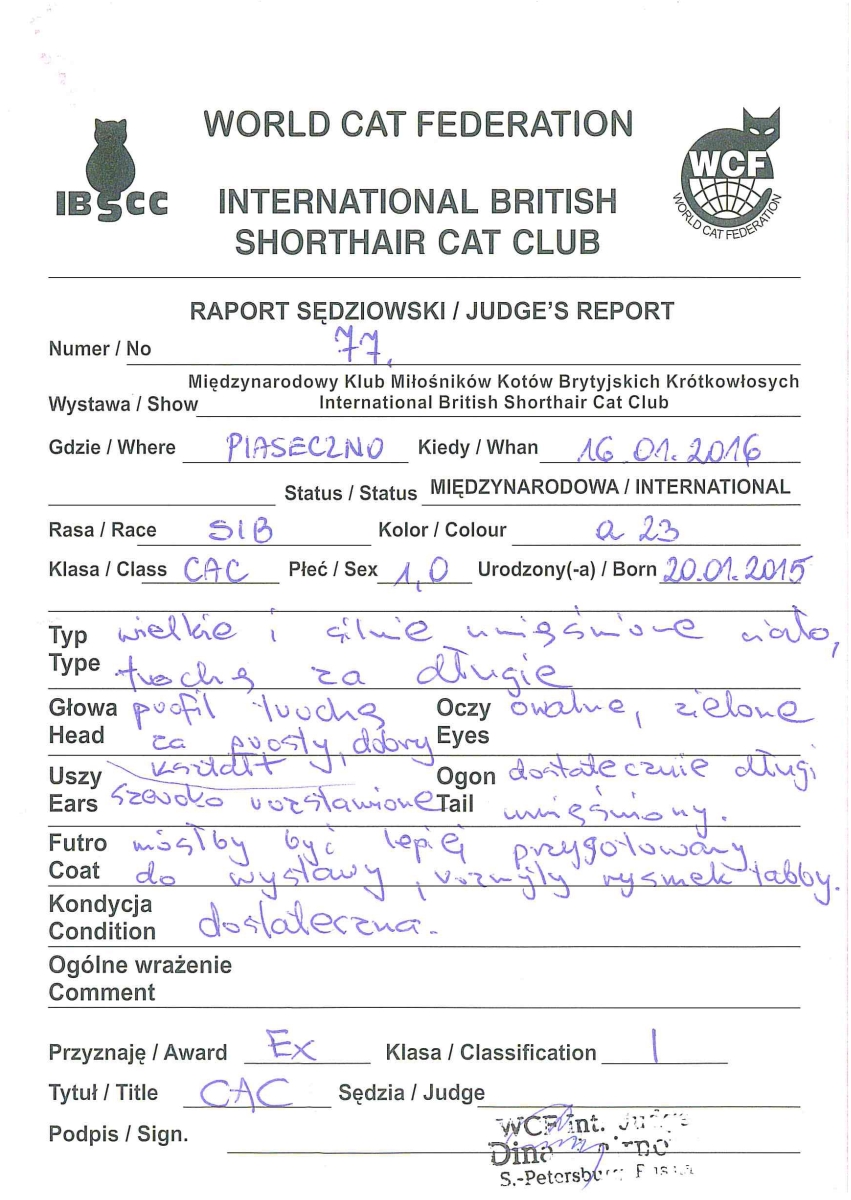 WORLD CAT FEDERATION
IBSCC
WCF
WORLD CAT FEDERATION
INTERNATIONAL BRITISH
SHORTHAIR CAT CLUB
RAPORT SĘDZIOWSKI / JUDGE'S REPORT
Numer / No 77.
Międzynarodowy Klub Miłośników Kotów Brytyjskich Krótkowłosych
Wystawa / Show International British Shorthair Cat Club
Gdzie / Where PIASECZNO Kiedy / Whan 16 01. 2016
Status / Status MIĘDZYNARODOWA / INTERNATIONAL
Rasa / Race SIB Kolor / Colour a 23
Klasa / Class CAC Płeć / Sex 1,0 Urodzony(-a) / Born 20.01.2015
Typ wielkie i silnie umięśnione ciało,
Type trochę za długie
Głowa profil trochę Oczy owalne, zielone
Head za prosty, dobry Eyes
Uszy kształt Ogon dostatecznie długi
Ears szeroko rozstawione Tail umięśniony.
Futro mógłby być lepiej przygotowany
Coat do wystawy, rozmyty rysunek tabby.
Kondycja
Condition dostateczna.
Ogólne wrażenie
Comment
Przyznaję / Award Ex Klasa / Classification 1
Tytuł / Title CAC Sędzia / Judge
WCF Int. Judge
Podpis / Sign. Dina
S.-Petersburg Russia